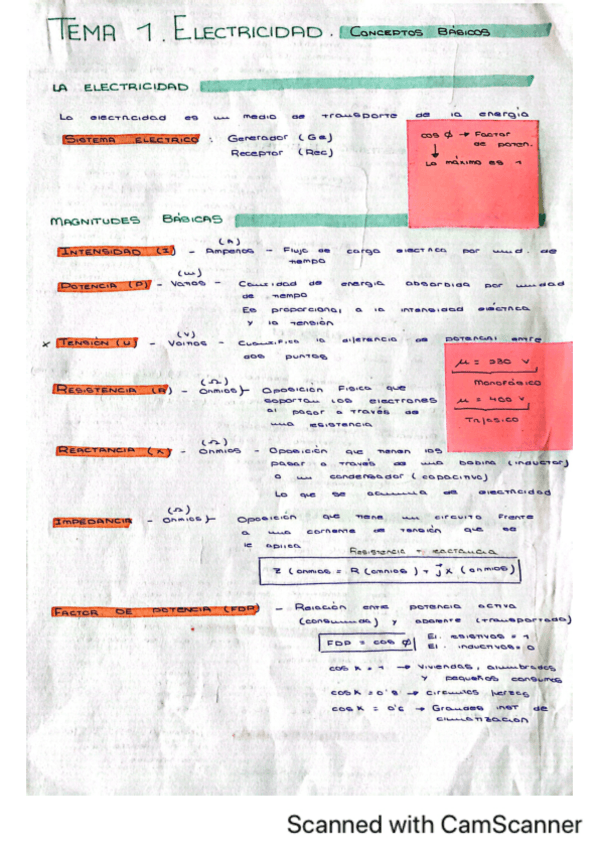 TEMA 1. ELECTRICIDAD. CONCEPTOS BÁSICOS
LA ELECTRICIDAD
La electricidad es un medio de transporte de la energía
SISTEMA ELECTRICO : Generador (Ge)
Receptor (Rec)
cos ϕ → Factor
de poten.
↓
Lo máximo es 1
MAGNITUDES BÁSICAS
(A)
INTENSIDAD (I) - Amperios - Flujo de carga electrica por unid. de
tiempo
(W)
POTENCIA (P) - Vatios - Cantidad de energia absorbida por unidad
de tiempo
Es proporcional a la intensidad eléctrica
y la tensión
(V)
x TENSIÓN (U) - Voltios - Cuantifica la diferencia de potencial entre
dos puntos
μ = 230 V
Monofásico
μ = 400 V
Trifásico
(Ω)
RESISTENCIA (R) - Ohmios - Oposición Física que
soportan los electrones
al pasar a través de
una resistencia
(Ω)
REACTANCIA (X) - Ohmios - Oposición que tienen los
pasar a través de una bobina (inductor)
o un condensador (capacitivo)
Lo que se acumula de electricidad
(Ω)
IMPEDANCIA - Ohmios - Oposición que tiene un circuito frente
a una corriente de tensión que se
le aplica
Resistencia + reactancia
Z (ohmios = R (ohmios) + j X (ohmios)
FACTOR DE POTENCIA (FDP) - Relación entre potencia activa
(consumida) y aparente (transportada)
FDP = cos ϕ El. resistivos = 1
El. inductivos = 0
cos x = 1 → Viviendas, alumbrados
y pequeños consumos
cos x = 0'8 → circuitos
cos x = 0'6 → Grandes inst de
climatización
Scanned with CamScanner